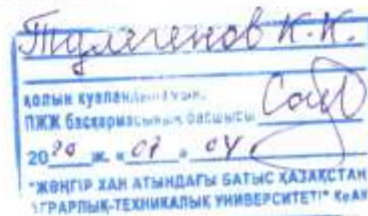 Тулегенов К.К.
қолын куәландырамын.
ПЖЖ басқармасының бастығы
20 20 ж. « 07 » 04
"ЖӘҢГІР ХАН АТЫНДАҒЫ БАТЫС ҚАЗАҚСТАН
АГРАРЛЫҚ-ТЕХНИКАЛЫҚ УНИВЕРСИТЕТІ" КеАҚ